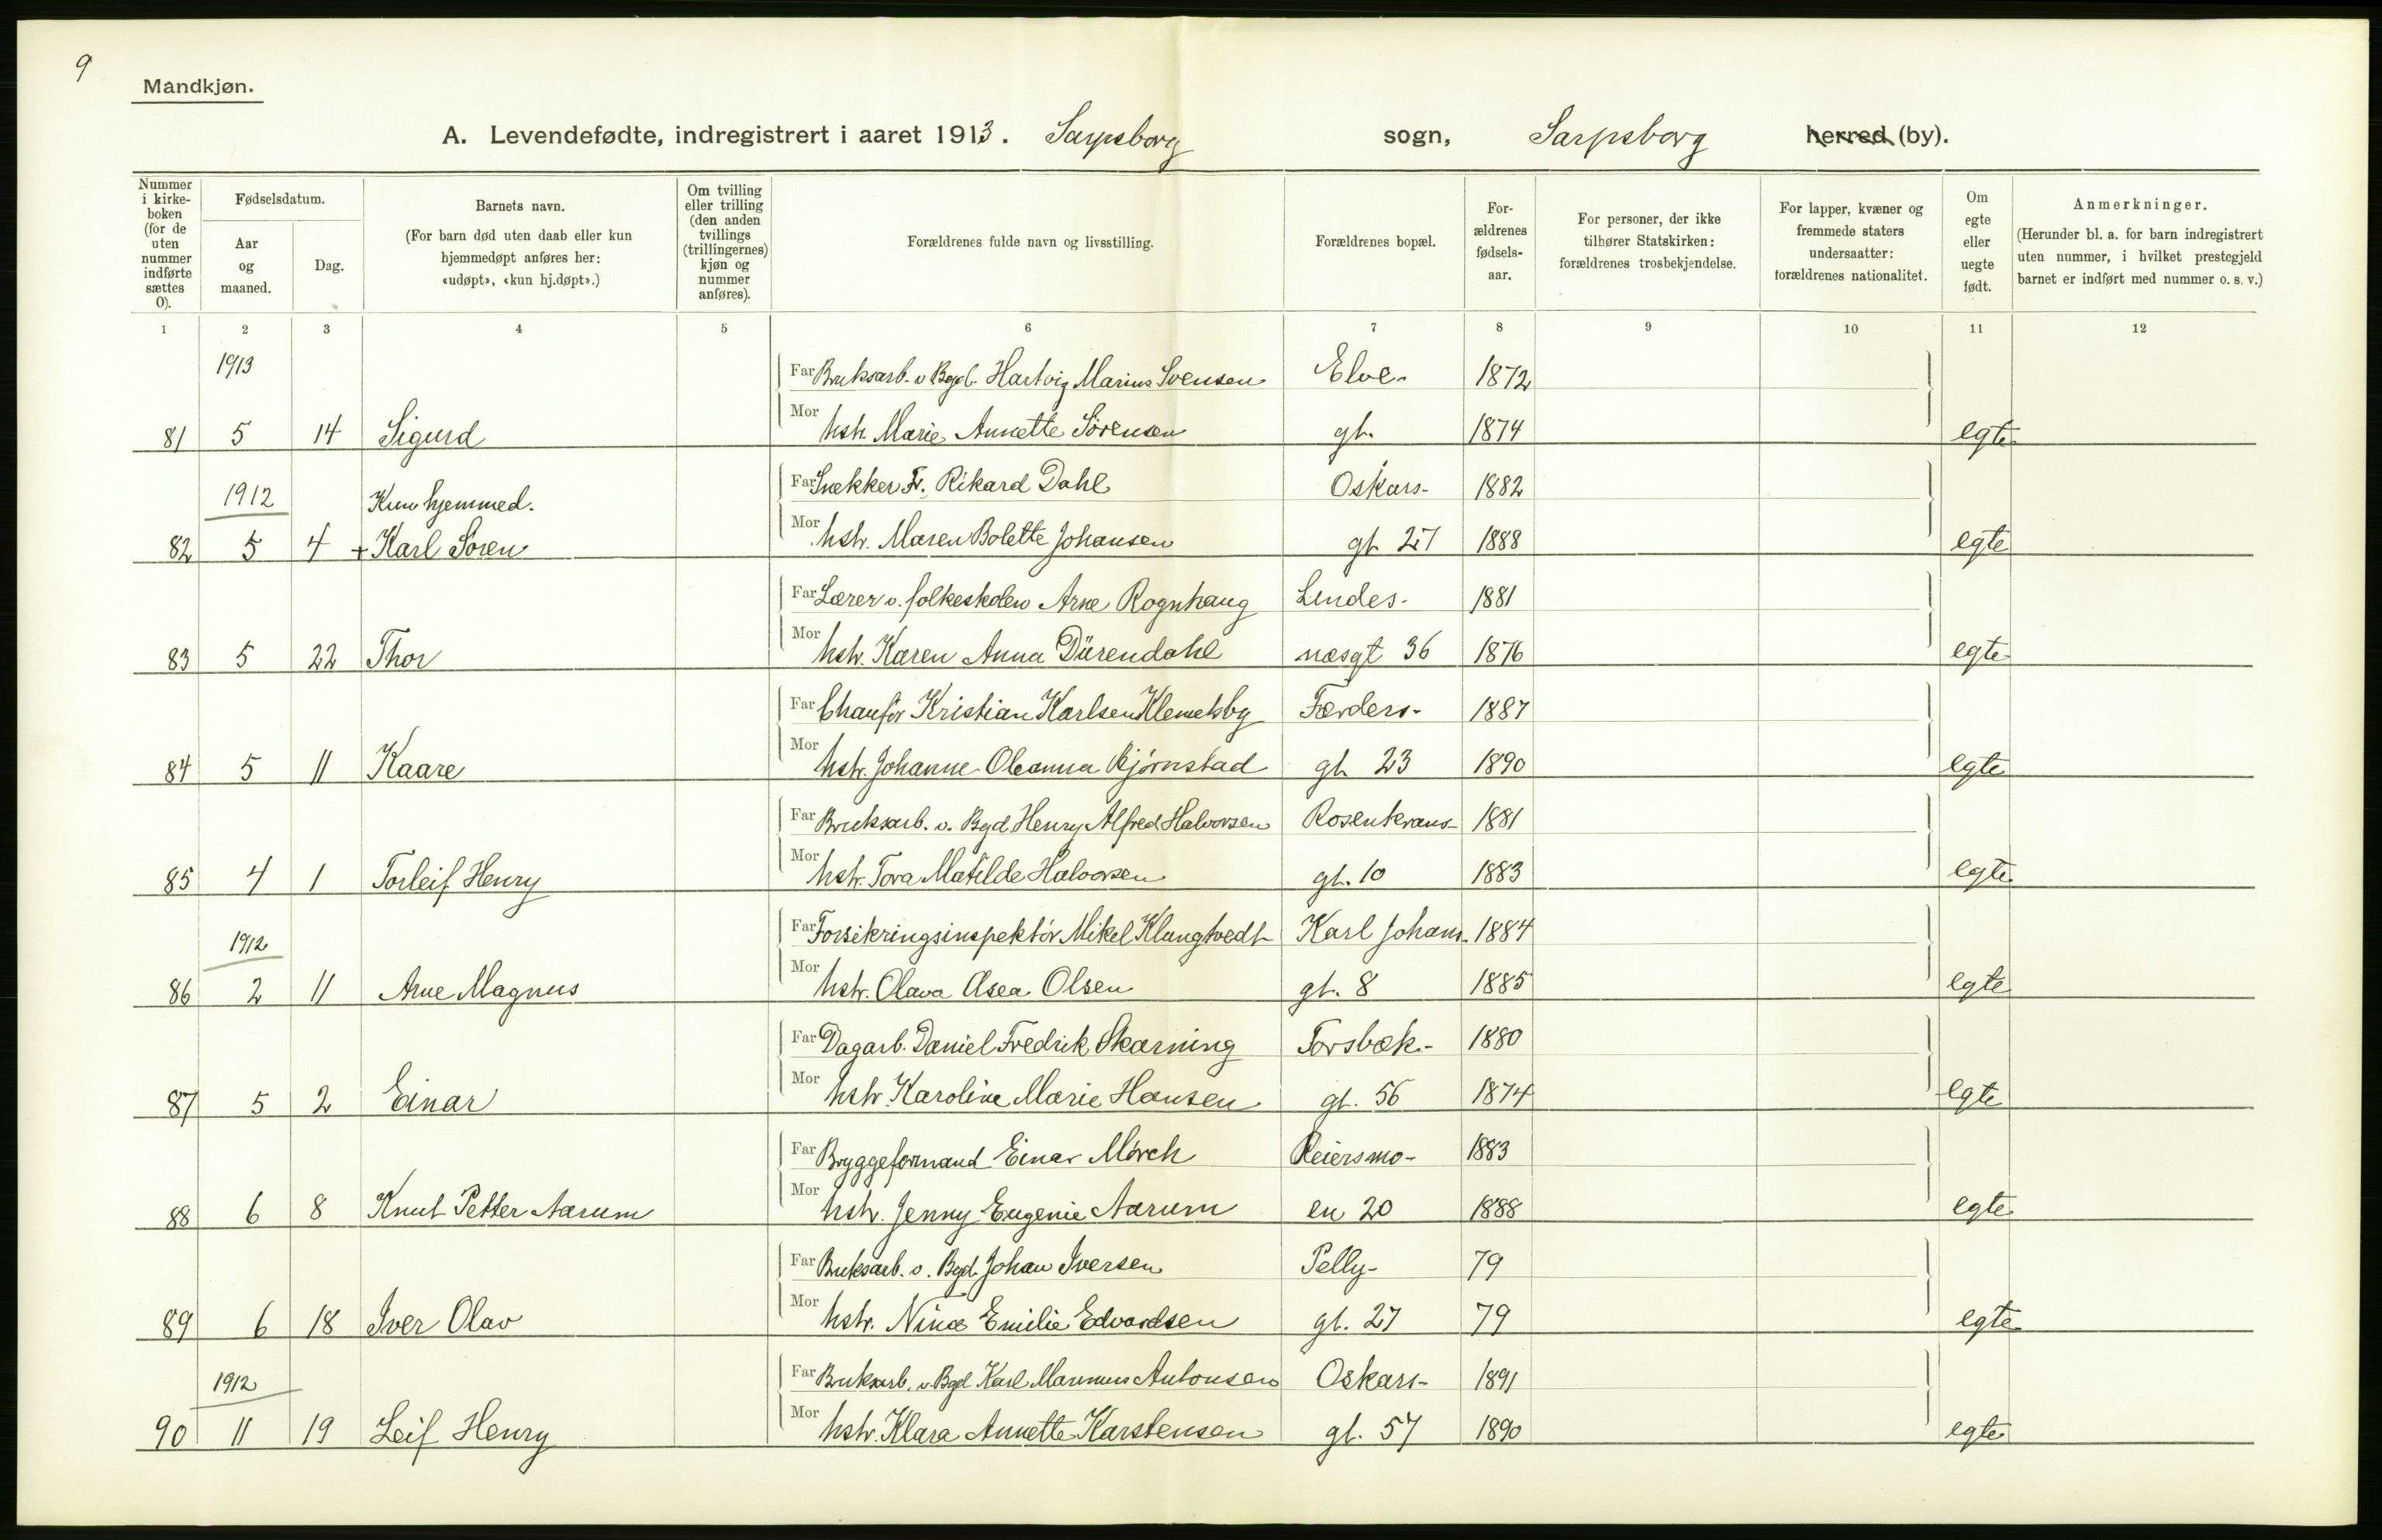 9
Mandkjøn.
A. Levendefødte, indregistrert i aaret 1913. Sarpsborg sogn, Sarpsborg herred (by).
Nummer i kirkeboken (for de uten nummer indførte sættes 0).
Fødselsdatum.
Aar og maaned.
Dag.
Barnets navn.
(For barn død uten daab eller kun hjemmedøpt anføres her: «udøpt», «kun hj.døpt».)
Om tvilling eller trilling (den anden tvillings (trillingernes) kjøn og nummer anføres).
Forældrenes fulde navn og livsstilling.
Forældrenes bopæl.
Forældrenes fødselsaar.
For personer, der ikke tilhører Statskirken: forældrenes trosbekjendelse.
For lapper, kvæner og fremmede staters undersaatter: forældrenes nationalitet.
Om egte eller uegte født.
Anmerkninger.
(Herunder bl. a. for barn indregistrert uten nummer, i hvilket prestegjeld barnet er indført med nummer o. s. v.)
1 2 3 4 5 6 7 8 9 10 11 12
1913 Far Bruksarb. v Bgd. Hartvig Marius Svensen Elve- 1872
81 5 14 Sigurd Mor hstr. Marie Annette Sörensen gt. 1874 egte
1912 Kun hjemmed. Far Snekker Fr. Rikard Dahl Oskars- 1882
82 5 4 + Karl Soren Mor hstr. Maren Bolette Johansen gt 27 1888 egte
Far Lærer v. folkeskolen Arne Rognhaug Lindes- 1881
83 5 22 Thor Mor hstr. Karen Anna Dürendahl næsgt 36 1876 egte
Far Chauför Kristian Karlsen Klemetsby Færders- 1887
84 5 11 Kaare Mor hstr. Johanne Oleanna Bjørnstad gt 23 1890 egte
Far Bruksarb. v. Bgd Henry Alfred Halvorsen Rosenkrans- 1881
85 4 1 Torleif Henry Mor hstr. Tora Matilde Halvorsen gt. 10 1883 egte
1912 Far Forsikringsinspektör Mikel Klungtvedt Karl Johans- 1884
86 2 11 Arne Magnus Mor hstr. Olava Asea Olsen gt. 8 1885 egte
Far Dagarb. Daniel Fredrik Skarning Torsbæk- 1880
87 5 2 Einar Mor hstr. Karoline Marie Hansen gt. 56 1874 egte
Far Bryggeformand Einar Mörch Reiersmo- 1883
88 6 8 Knut Petter Aarum Mor hstr. Jenny Eugenie Aarum en 20 1888 egte
Far Bruksarb. v. Bgd. Johan Iversen Pelly- 79
89 6 18 Iver Olav Mor hstr. Nina Emilie Edvardsen gt. 27 79 egte
1912 Far Bruksarb. v. Bgd Karl Marinius Antonsen Oskars- 1891
90 11 19 Leif Henry Mor hstr. Klara Annette Karstensen gt. 57 1890 egte